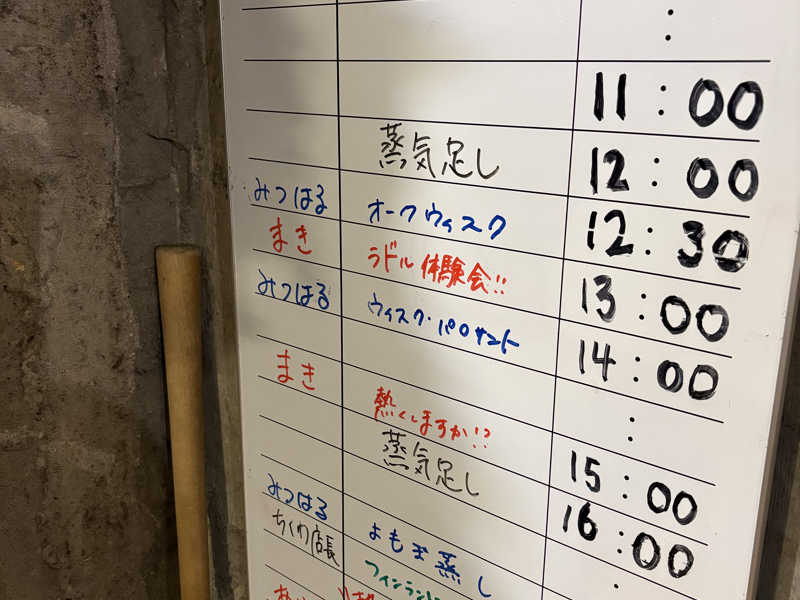 :
11:00
蒸気足し 12:00
みつはる オークウィスク 12:30
まき ラドル体験会!! 13:00
みつはる ウィスク・パロサント 14:00
:
まき 熱くしますか!? 15:00
蒸気足し 16:00
:
みつはる よもぎ蒸し
ちくわ店長